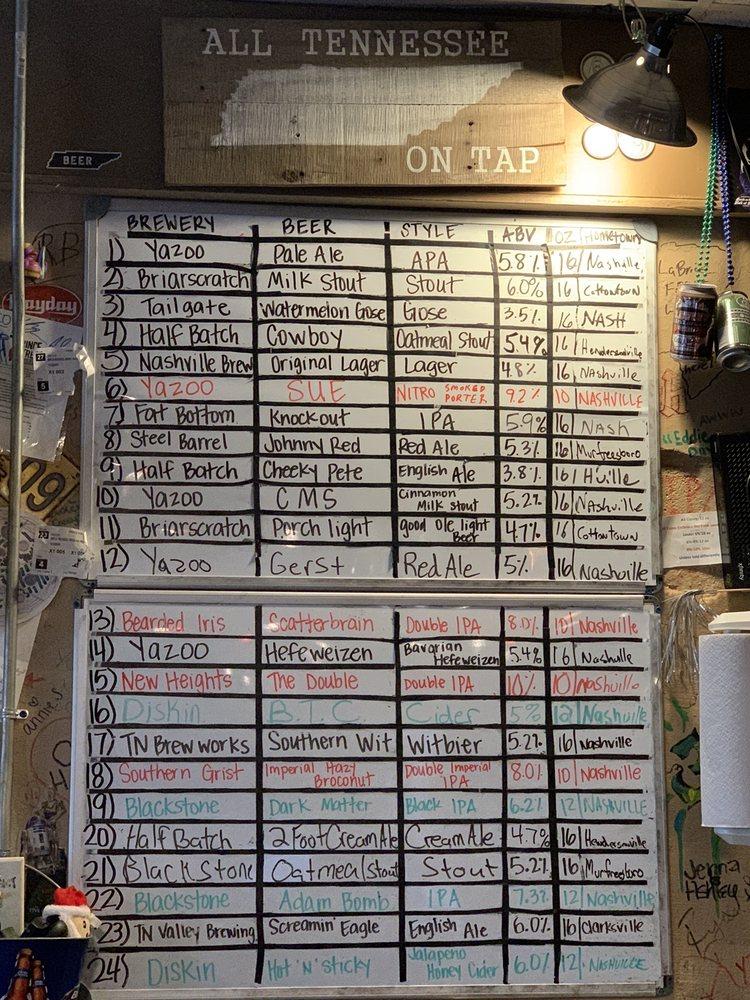 ALL TENNESSEE
ON TAP
BEER
BREWERY BEER STYLE ABV OZ Hometown
1) Yazoo Pale Ale APA 5.8% 16 Nashville
2) Briarscratch Milk Stout Stout 6.0% 16 Cottontown
3) Tailgate Watermelon Gose Gose 3.5% 16 NASH
4) Half Batch Cowboy Oatmeal Stout 5.4% 16 Hendersonville
5) Nashville Brew Original Lager Lager 4.8% 16 Nashville
6) Yazoo SUE NITRO SMOKED PORTER 9.2% 10 NASHVILLE
7) Fat Bottom Knockout IPA 5.9% 16 Nash
8) Steel Barrel Johnny Red Red Ale 5.3% 16 Murfreesboro
9) Half Batch Cheeky Pete English Ale 3.8% 16 H'ville
10) Yazoo CMS Cinnamon Milk Stout 5.2% 16 Nashville
11) Briarscratch Porch light good ole light Beer 4.7% 16 Cottontown
12) Yazoo Gerst Red Ale 5% 16 Nashville
13) Bearded Iris Scatterbrain Double IPA 8.0% 10 Nashville
14) Yazoo Hefeweizen Bavarian Hefeweizen 5.4% 16 Nashville
15) New Heights The Double Double IPA 10% 10 Nashville
16) Diskin B.T.C. Cider 5% 12 Nashville
17) TN Brew works Southern Wit Witbier 5.2% 16 Nashville
18) Southern Grist Imperial Hazy Broconut Double Imperial IPA 8.0% 10 Nashville
19) Blackstone Dark Matter Black IPA 6.2% 12 NASHVILLE
20) Half Batch 2 Foot Cream Ale Cream Ale 4.7% 16 Hendersonville
21) Black Stone Oatmeal Stout Stout 5.2% 16 Murfreesboro
22) Blackstone Adam Bomb IPA 7.3% 12 Nashville
23) TN Valley Brewing Screamin' Eagle English Ale 6.0% 16 Clarksville
24) Diskin Hot 'N' Sticky Jalapeno Honey Cider 6.0% 12 NASHVILLE